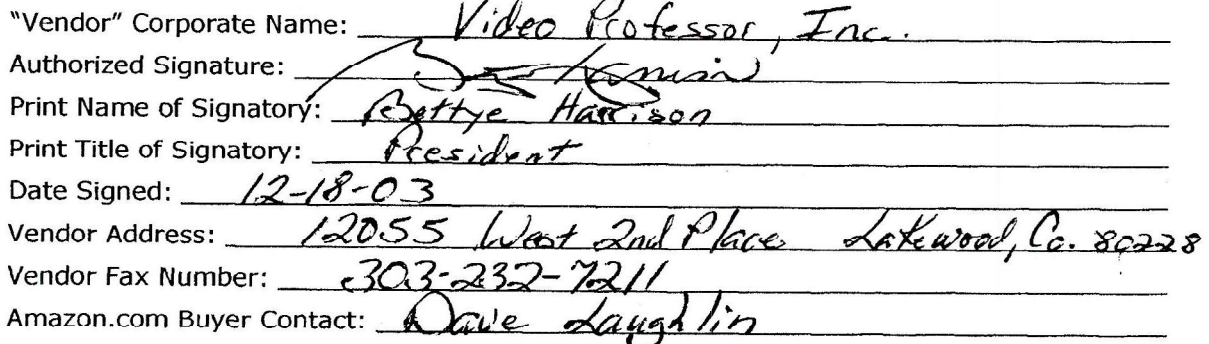 "Vendor" Corporate Name: Video Professor, Inc.
Authorized Signature:
Print Name of Signatory: Bettye Harrison
Print Title of Signatory: President
Date Signed: 12-18-03
Vendor Address: 12055 West 2nd Place Lakewood, Co. 80228
Vendor Fax Number: 303-232-7211
Amazon.com Buyer Contact: Dave Laughlin